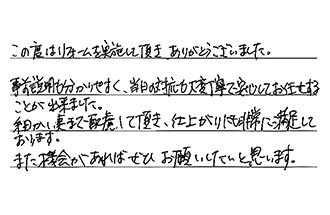 この度はリフォームを実施して頂き、ありがとうございました。
事前説明も分かりやすく、当日の対抗も大変丁寧で安心してお任せする
ことが出来ました。
細かい事まで配慮して頂き、仕上がりにも非常に満足して
おります。
また機会があればぜひお願いしたいと思います。